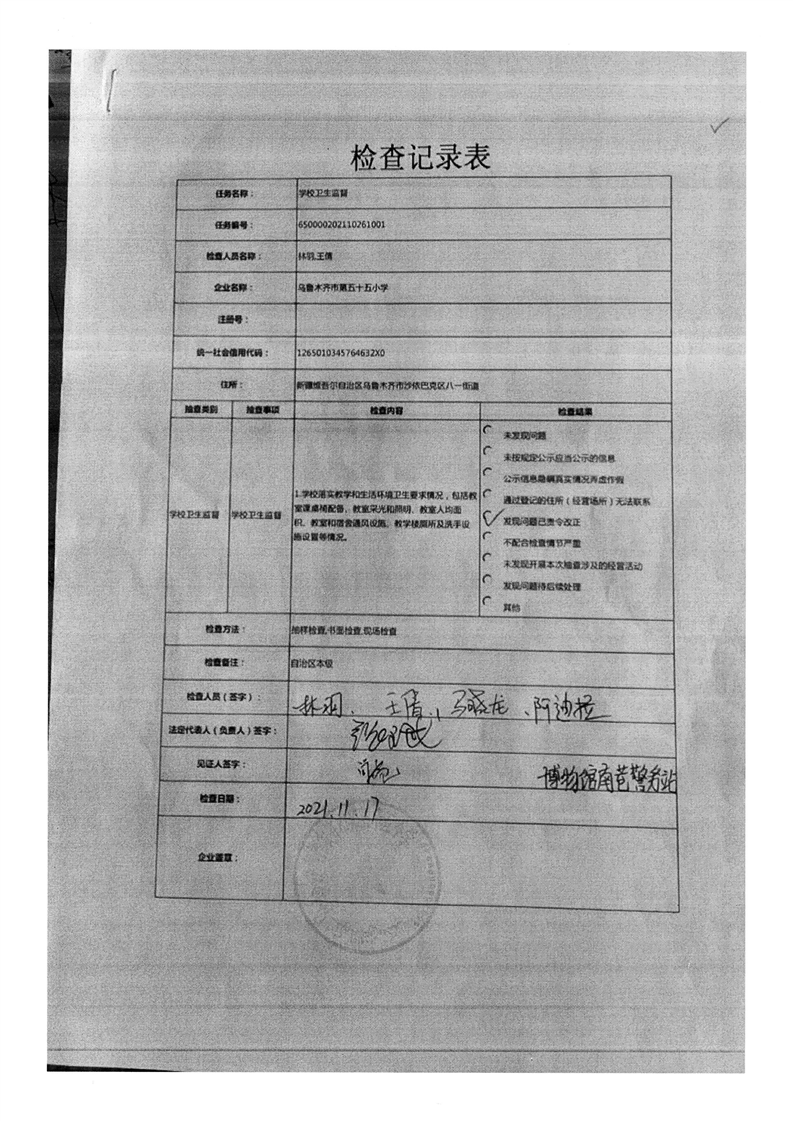 检查记录表
任务名称： 学校卫生监督
任务编号： 650000202110261001
检查人员名称： 林羽,王倩
企业名称： 乌鲁木齐市第五十五小学
注册号：
统一社会信用代码： 1265010345764632X0
住所： 新疆维吾尔自治区乌鲁木齐市沙依巴克区八一街道
抽查类别 抽查事项 检查内容 检查结果
学校卫生监督 学校卫生监督
1.学校落实教学和生活环境卫生要求情况，包括教
室课桌椅配备、教室采光和照明、教室人均面
积、教室和宿舍通风设施、教学楼厕所及洗手设
施设置等情况。
未发现问题
未按规定公示应当公示的信息
公示信息隐瞒真实情况弄虚作假
通过登记的住所（经营场所）无法联系
发现问题已责令改正
不配合检查情节严重
未发现开展本次抽查涉及的经营活动
发现问题待后续处理
其他
检查方法： 抽样检查,书面检查,现场检查
检查备注： 自治区本级
检查人员（签字）： 林羽、王倩、马晓龙、阿迪拉
法定代表人（负责人）签字：
见证人签字： 博物馆南巷警务站
检查日期： 2021.11.17
企业盖章：